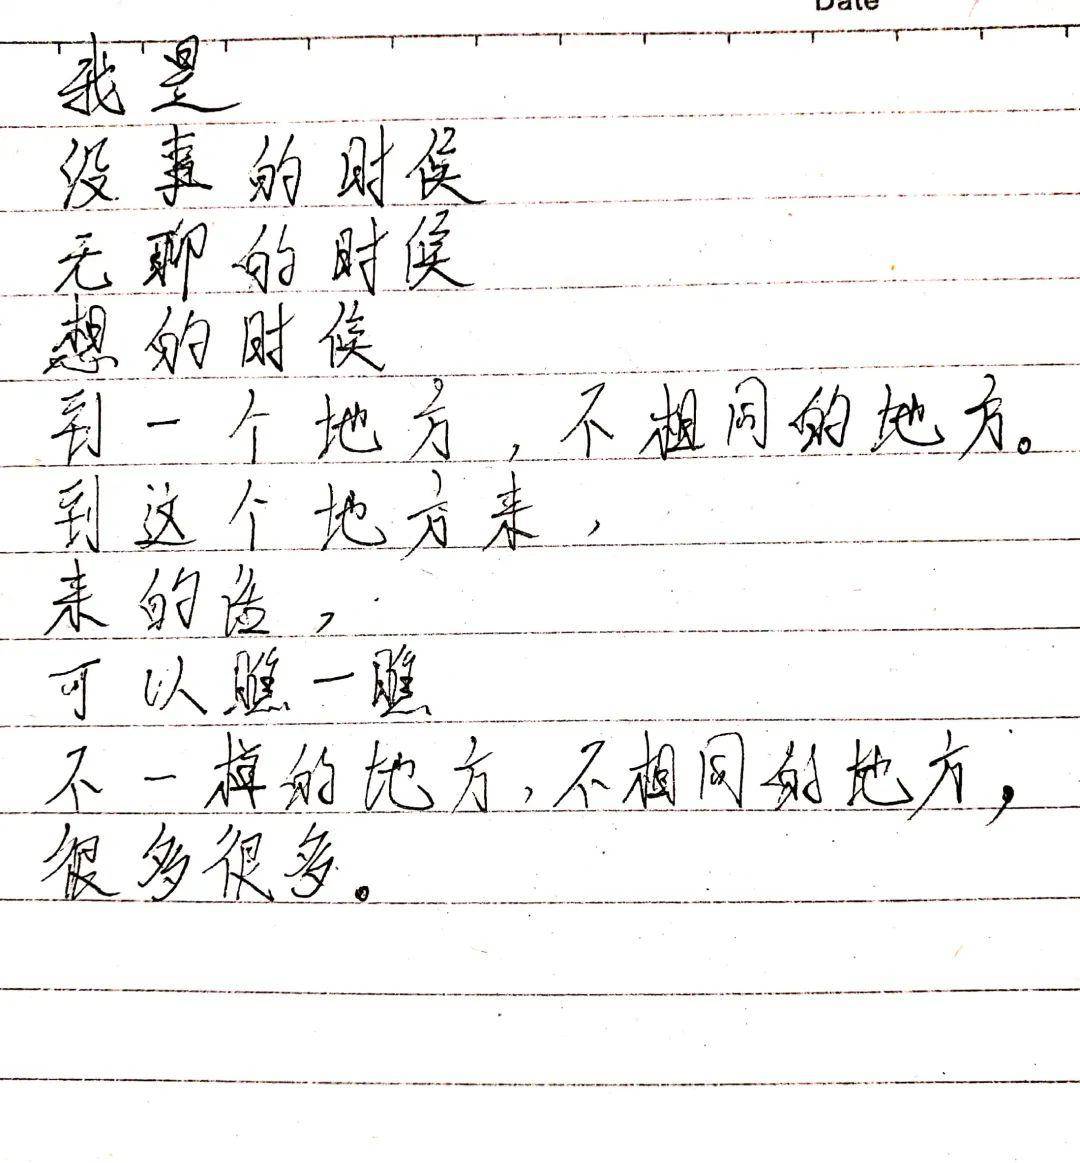 Date
我是
没事的时候
无聊的时候
想的时候
到一个地方，不相同的地方。
到这个地方来，
来的话，
可以瞧一瞧
不一样的地方，不相同的地方，
很多很多。